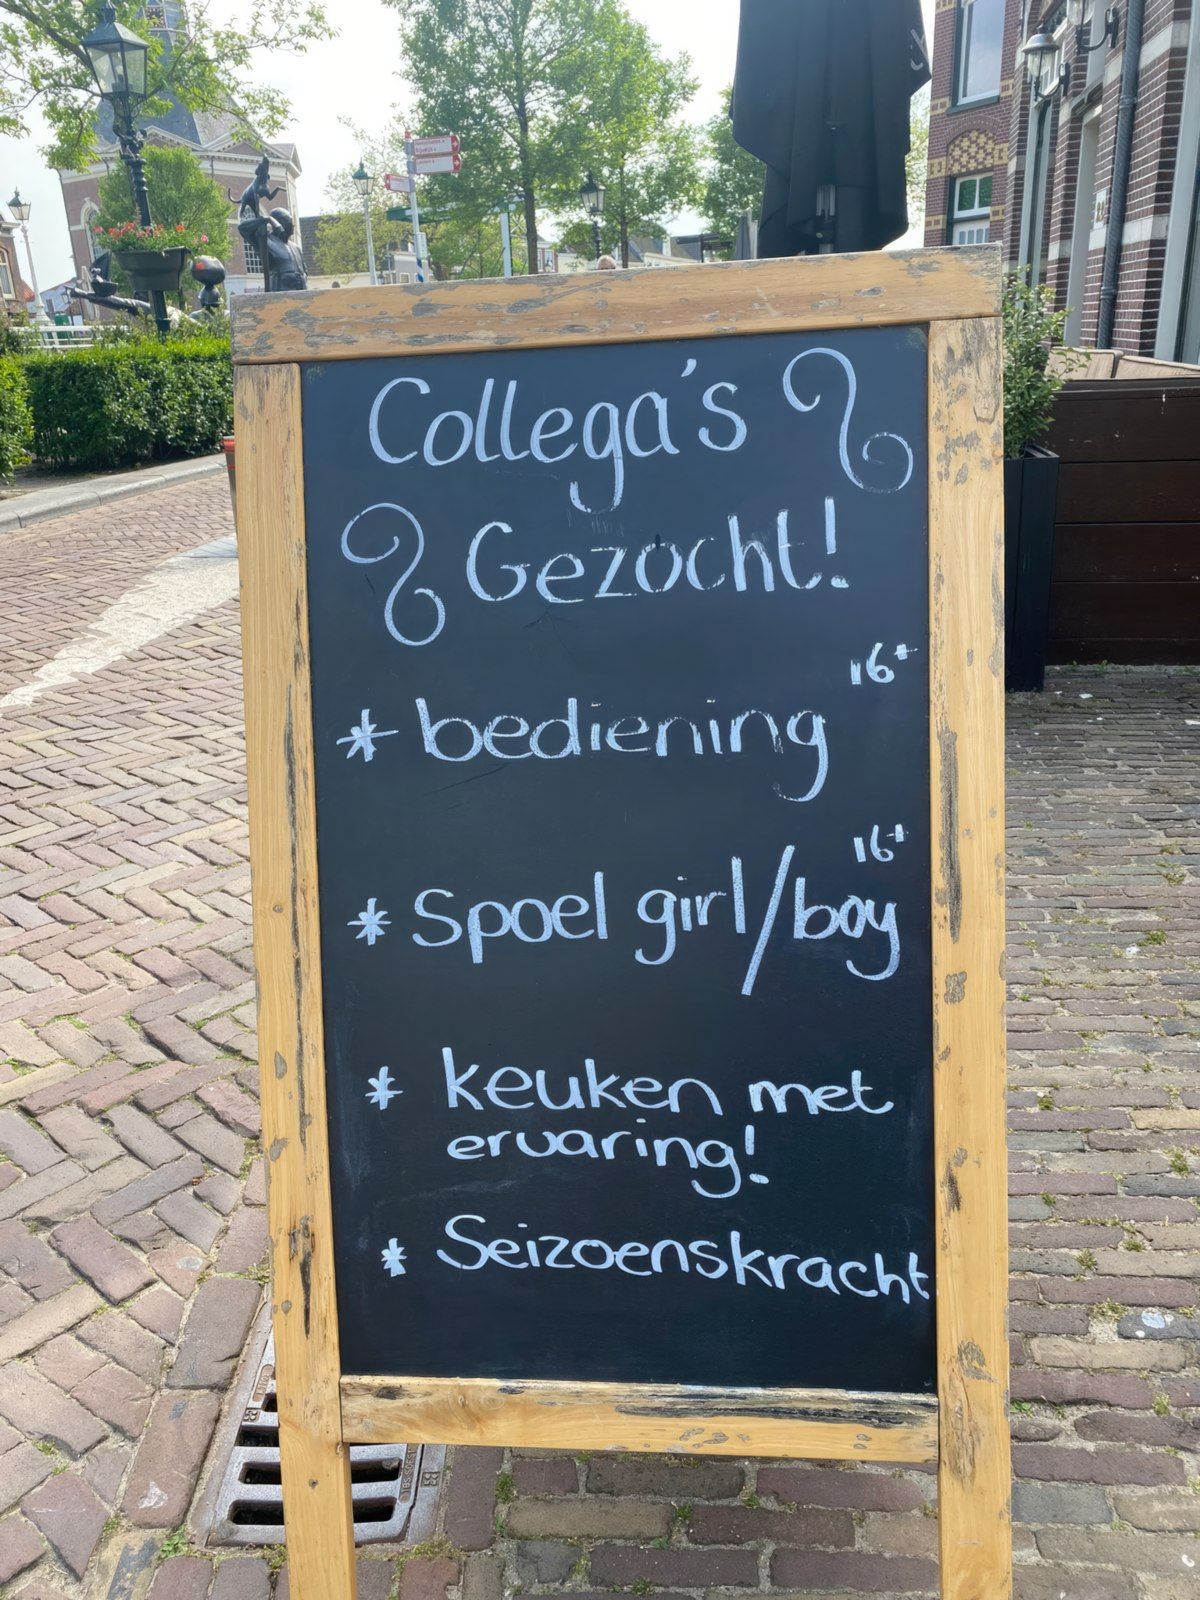 Collega's
Gezocht!
* bediening 16+
* Spoel girl/boy 16+
* keuken met
ervaring!
* Seizoenskracht